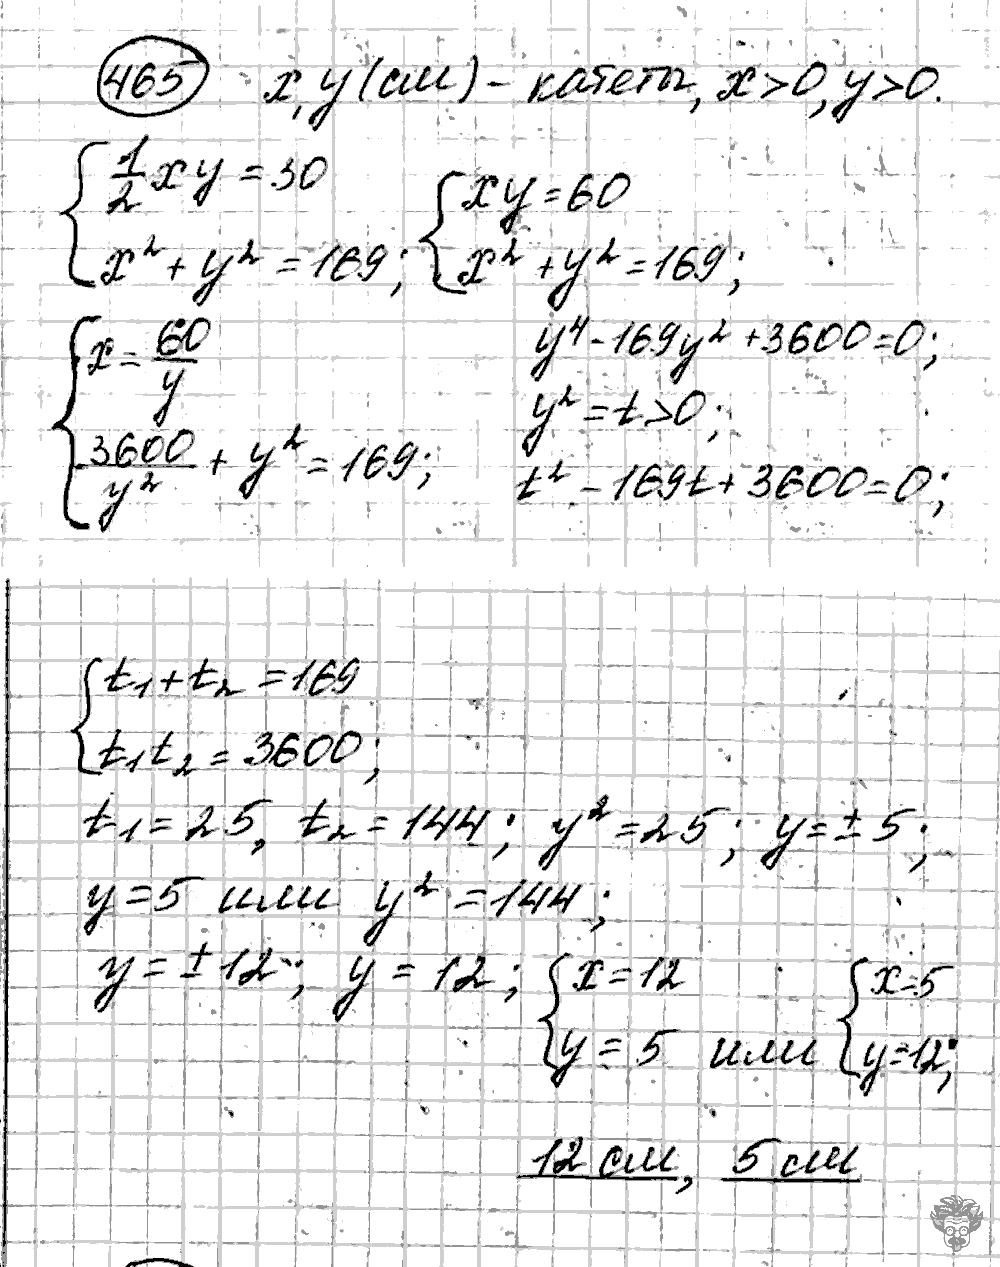 465 x, y (см) – катеты, x > 0, y > 0.
{ 1/2 xy = 30
x² + y² = 169;
{ xy = 60
x² + y² = 169;
{ x = 60/y
3600/y² + y² = 169;
y⁴ - 169y² + 3600 = 0;
y² = t > 0;
t² - 169t + 3600 = 0;
{ t₁ + t₂ = 169
t₁t₂ = 3600;
t₁ = 25, t₂ = 144; y² = 25; y = ± 5;
y = 5 или y² = 144;
y = ± 12; y = 12; { x = 12 y = 5 или { x = 5 y = 12;
12 см, 5 см